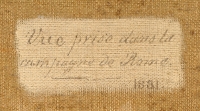 Vue prise dans la
campagne de Rome.
1831.